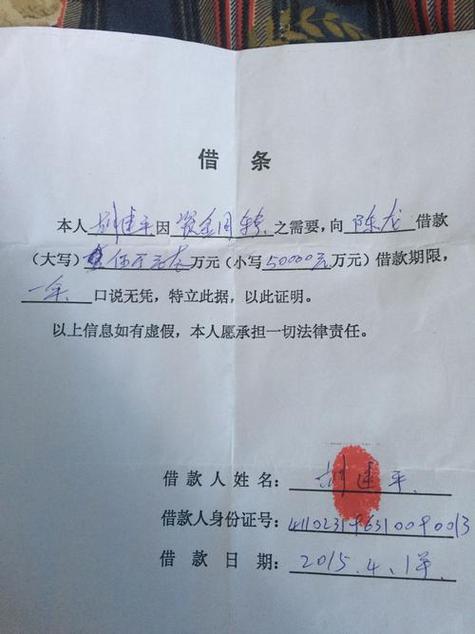 借条
本人刘建平因资金周转之需要，向陈龙借款
（大写）伍万元整万元（小写50000元万元）借款期限，
一年.口说无凭，特立此据，以此证明。
以上信息如有虚假，本人愿承担一切法律责任。
借款人姓名：刘建平.
借款人身份证号：
借款日期：2015.4.1